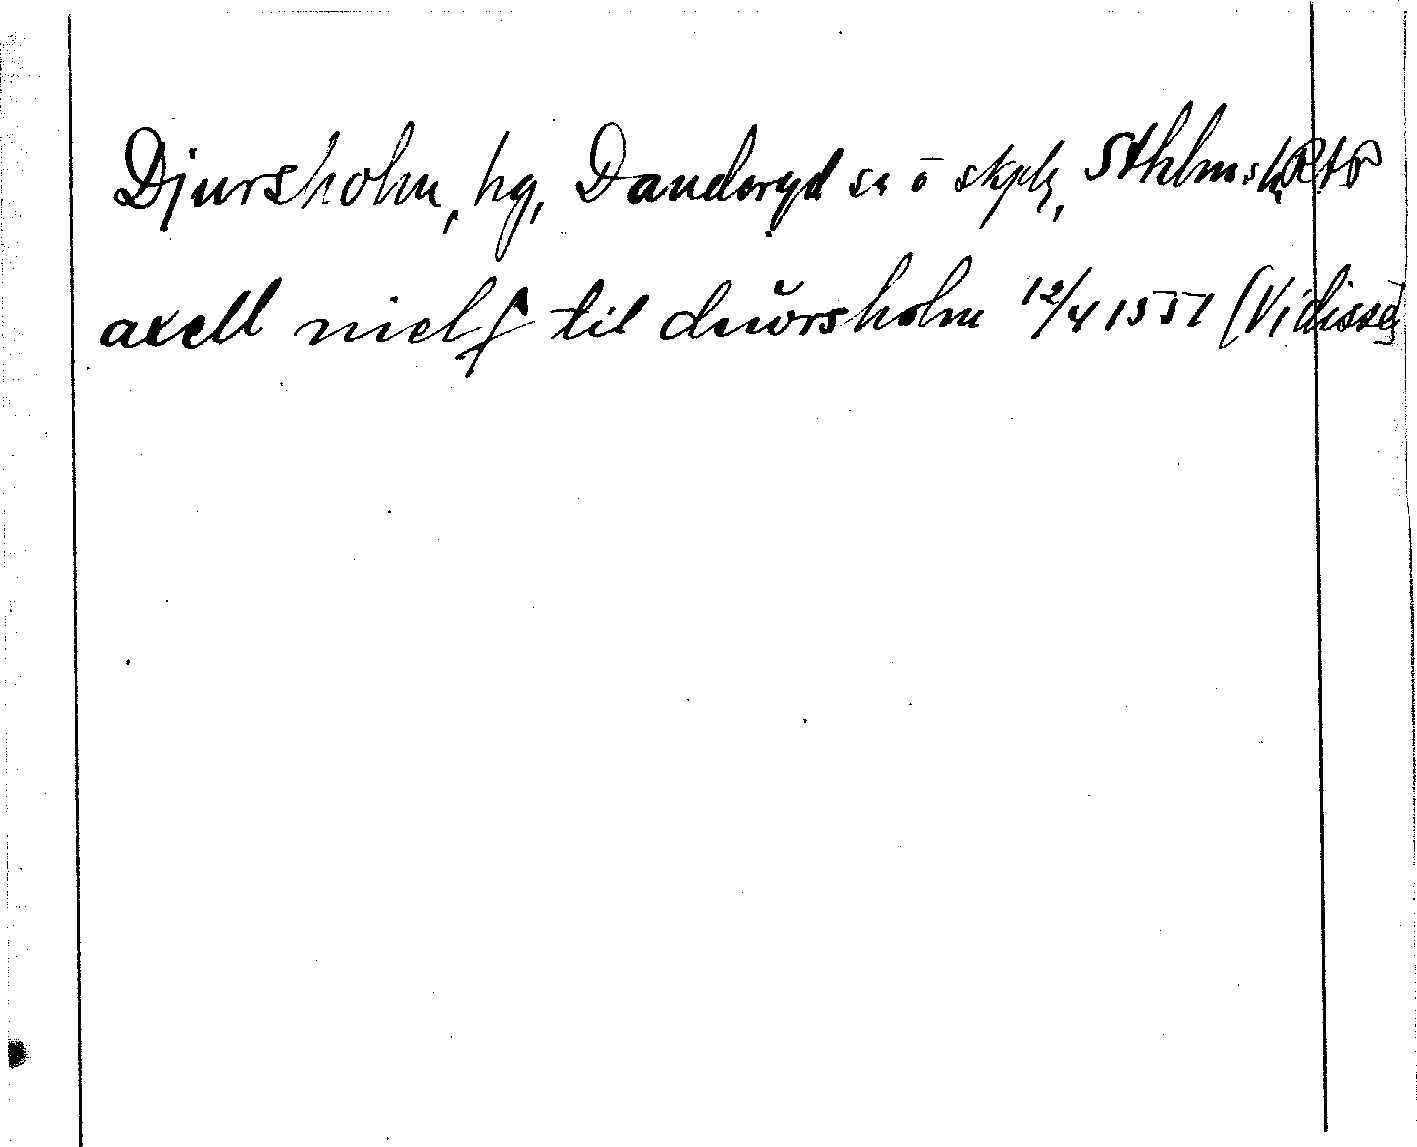 Djursholm, hg, Danderyd sn o skplg, Sthlms l. RAP
axell nielß til duorsholm 12/4 1551 (Vidisse)